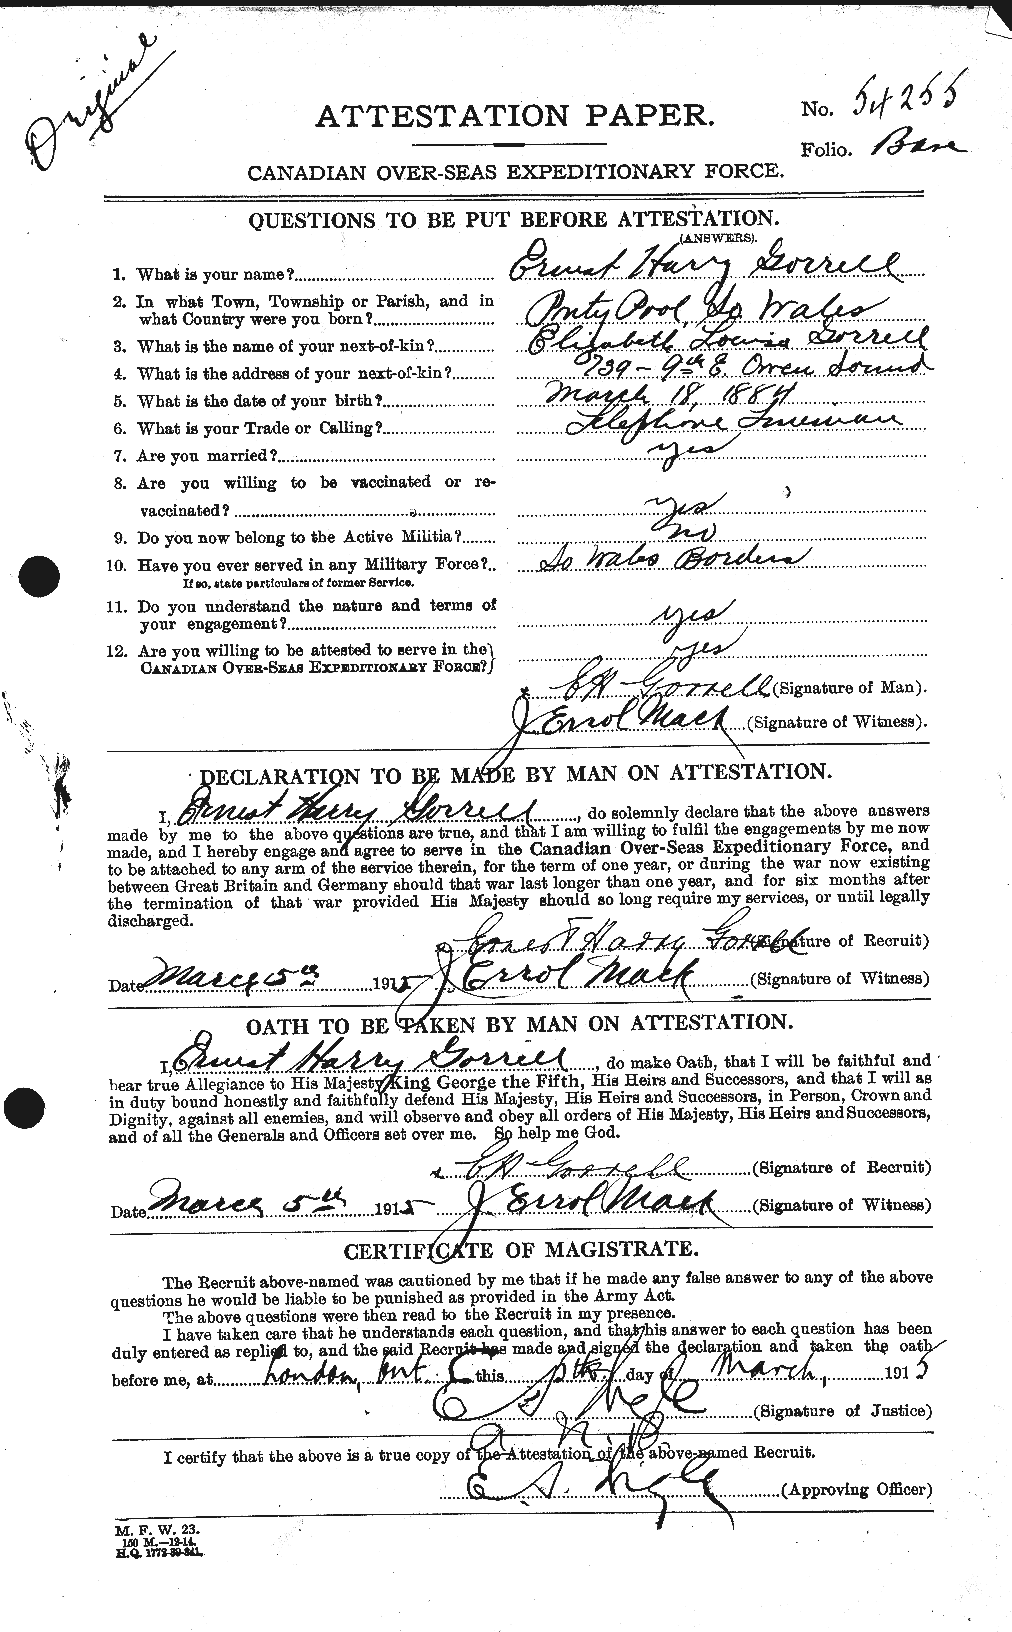 Original
ATTESTATION PAPER.
No. 54255
Folio. Base
CANADIAN OVER-SEAS EXPEDITIONARY FORCE.
QUESTIONS TO BE PUT BEFORE ATTESTATION.
(ANSWERS).
1. What is your name? Ernest Harry Gorrell
2. In what Town, Township or Parish, and in
what Country were you born? Pnty Pool, So Wales
3. What is the name of your next-of-kin? Elizabeth Louisa Gorrell
4. What is the address of your next-of-kin? 739 - 9th E. Owen Sound
5. What is the date of your birth? March 18, 1884
6. What is your Trade or Calling? Telephone Lineman
7. Are you married? yes
8. Are you willing to be vaccinated or re-
vaccinated? yes
9. Do you now belong to the Active Militia? no
10. Have you ever served in any Military Force? So Wales Borders
If so, state particulars of former Service.
11. Do you understand the nature and terms of
your engagement? yes
12. Are you willing to be attested to serve in the
CANADIAN OVER-SEAS EXPEDITIONARY FORCE? yes
x EH Gorrell (Signature of Man).
J Errol Mack (Signature of Witness).
DECLARATION TO BE MADE BY MAN ON ATTESTATION.
I, Ernest Harry Gorrell, do solemnly declare that the above answers
made by me to the above questions are true, and that I am willing to fulfil the engagements by me now
made, and I hereby engage and agree to serve in the Canadian Over-Seas Expeditionary Force, and
to be attached to any arm of the service therein, for the term of one year, or during the war now existing
between Great Britain and Germany should that war last longer than one year, and for six months after
the termination of that war provided His Majesty should so long require my services, or until legally
discharged.
Ernest Harry Gorrell (Signature of Recruit)
Date March 5th 1915 J Errol Mack (Signature of Witness)
OATH TO BE TAKEN BY MAN ON ATTESTATION.
I, Ernest Harry Gorrell, do make Oath, that I will be faithful and
bear true Allegiance to His Majesty King George the Fifth, His Heirs and Successors, and that I will as
in duty bound honestly and faithfully defend His Majesty, His Heirs and Successors, in Person, Crown and
Dignity, against all enemies, and will observe and obey all orders of His Majesty, His Heirs and Successors,
and of all the Generals and Officers set over me. So help me God.
x EH Gorrell (Signature of Recruit)
Date March 5th 1915 J Errol Mack (Signature of Witness)
CERTIFICATE OF MAGISTRATE.
The Recruit above-named was cautioned by me that if he made any false answer to any of the above
questions he would be liable to be punished as provided in the Army Act.
The above questions were then read to the Recruit in my presence.
I have taken care that he understands each question, and that his answer to each question has been
duly entered as replied to, and the said Recruit has made and signed the declaration and taken the oath
before me, at London, Ont. this 5th day of March, 1915
(Signature of Justice)
I certify that the above is a true copy of the Attestation of the above-named Recruit.
(Approving Officer)
M. F. W. 23.
150 M.—12-14.
H.Q. 1772-39-841.